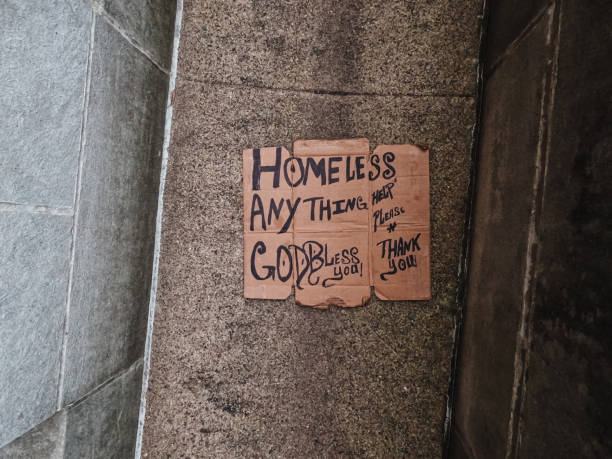 HOMELESS
ANYTHING HELP'
PLEASE
*
GOD BLESS YOU!
THANK YOU!